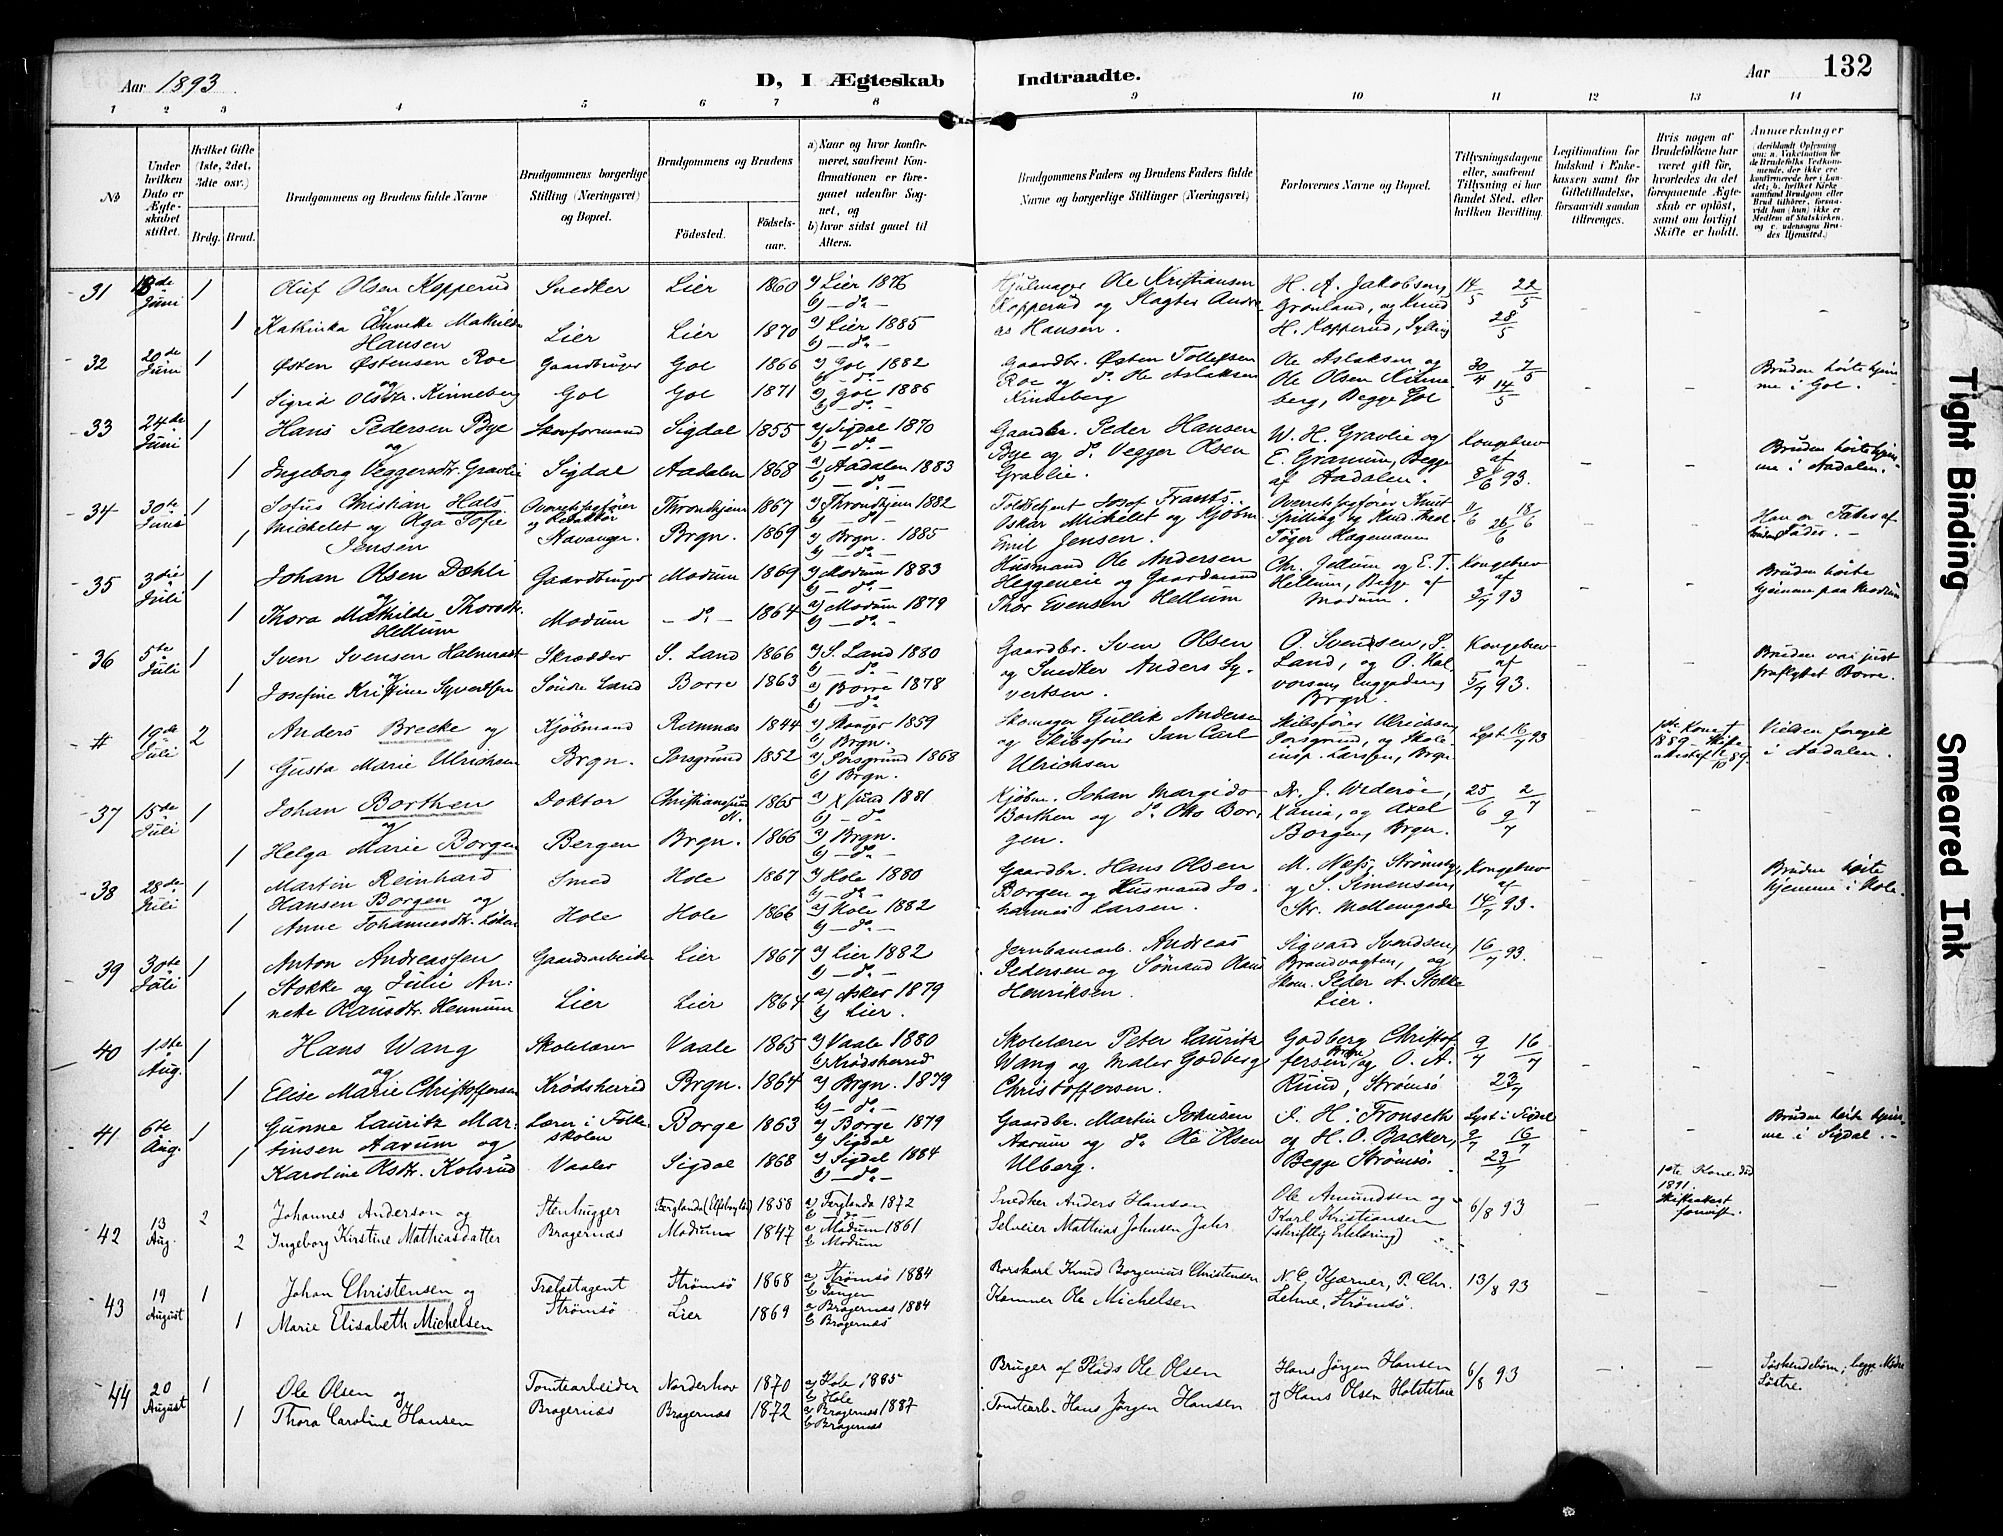 Aar 1893
D, I Ægteskab Indtraadte.
Aar 132
1 2 3 4 5 6 7 8 9 10 11 12 13 14
No
Under hvilken Dato er Ægteskabet stiftet.
Hvilket Gifte (1ste, 2det, 3dte osv.)
Brdg. Brud.
Brudgommens og Brudens fulde Navne
Brudgommens borgerlige Stilling (Næringsvei) og Bopæl.
Brudgommens og Brudens
Fødested.
Fødselsaar.
a) Naar og hvor konfirmeret, saafremt Konfirmationen er foregaaet udenfor Sognet, og
b) hvor sidst gaaet til Alters.
Brudgommens Faders og Brudens Faders fulde Navne og borgerlige Stillinger (Næringsvei)
Forlovernes Navne og Bopæl.
Tillysningsdagene eller, saafremt Tillysning ei har fundet Sted, efter hvilken Bevilling.
Legitimation for Indskud i Enkekassen samt for Giftetilladelse, forsaavidt saadan tiltrænges.
Hvis nogen af Brudefolkene har været gift før, hvorledes da det foregaaende Ægteskab er opløst, samt om lovligt Skifte er holdt.
Anmærkninger
(deriblandt Oplysning om: a. Vakcination for de Brudefolks Vedkommende, der ikke ere konfirmerede her i Landet; b. hvilket Kirkesamfund Brudgom eller Brud tilhører, forsaavidt han (hun) ikke er Medlem af Statskirken, og c. udensogns Brudes Hjemsted.)
31 18de Juni 1 Oluf Olsen Kopperud Snedker Lier 1860 a) Lier 1876 b) - do - Hjulmager Ole Kristiansen Kopperud og Slagter Andreas Hansen. H. A. Jakobsen, Grønland, og Knud H. Kopperud, Sylling 14/5 22/5 28/5
og
1 Kathinka Annette Mathilde Hansen Lier Lier 1870 a) Lier 1885 b) - do -
32 20de Juni 1 Østen Østensen Roe Gaardbruger Gol 1866 a) Gol 1882 b) - do - Gaardbr. Østen Tollefsen Roe og do Ole Aslaksen Kinneberg Ole Aslaksen og Ole Olsen Kinneberg, Begge Gol 30/4 7/5 14/5 Bruden hørte hjemme i Gol.
og
1 Sigrid Olsdtr. Kinneberg Gol Gol 1871 a) Gol 1886 b) - do -
33 24de Juni 1 Hans Pedersen Bye Skovformand Sigdal 1855 a) Sigdal 1870 b) - do - Gaardbr. Peder Hansen Bye og do Vegger Olsen Gravlie. W. H. Gravlie og E. Granum, Begge af Aadalen. Kongebrev af 8/6 93. Bruden hørte hjemme i Aadalen.
og
1 Ingeborg Veggersdtr. Gravlie Sigdal Aadalen 1868 a) Aadalen 1883 b) - do -
34 30te Juni 1 Sofus Christian Hals Michelet og Olga Sofie Jensen Overretssagfører og Redaktør Stavanger. Throndhjem 1867 a) Throndhjem 1882 b) - do - Toldbetjent Josef Frants Oskar Michelet og Kjøbm. Emil Jensen. Overretssagfører Knut Spilling og Kand. theol. Tøger Hagemann 18/6 Han er Fætter af Brudens Fader.
1 Brgn. 1869 a) Brgn. 1885 b) - do -
35 3die Juli 1 Johan Olsen Dæhli Gaardbruger Modum 1869 a) Modum 1883 b) - do - Husmand Ole Andersen Heggeneie og Gaardmand Thor Evensen Hellum Chr. Jellum og E. T. Hellum, Begge af Modum. Kongebrev af 3/7 93 Bruden hørte hjemme paa Modum
og
1 Thora Mathilde Thorsdtr. Hellum Modum - do - 1864 a) Modum 1879 b) - do -
36 5te Juli 1 Sven Svensen Skrædder S. Land 1866 a) S. Land 1880 b) - do - Gaardbr. Sven Olsen og Snedker Anders Syvertsen. O. Svendsen, S. Land, og O. Halvorsen, Brgn. Kongebrev af 5/7 93. Bruden var just fraflyttet Borre.
og
1 Josefine Kristine Syvertsen Søndre Land Borre 1863 a) Borre 1878 b) - do -
# 19de Juli 2 Anders Brecke og Kjøbmand Ramnæs 1844 a) 1859 b) Brgn. Skomager Gullik Andersen og Skibsfører Jan Carl Ulrichsen Skibsfører Ulrichsen, Porsgrund, og Skoleinsp. Larssen, Brgn. Lyst 16/7 93 1ste Kone † 1889 Skifteattest 1/10 89. Vielsen foregik i Aadalen.
1 Gusta Marie Ulrichsen Brgn. Porsgrund 1852 a) Porsgrund 1868 b) Brgn.
37 15de Juli 1 Johan Borthen Doktor Christianssund N. 1865 a) Xsund 1881 b) - do - Kjøbm. Johan Margido Borthen og do Otto Borgen. N. J. Wederøe, Xania, og Axel Borgen, Brgn. 25/6 2/7 9/7
og
1 Helga Marie Borgen Bergen Brgn. 1866 a) Brgn. b) - do -
38 28de Juli 1 Martin Reinhard Hansen Borgen og Smed Hole 1867 a) Hole 1880 b) - do - Gaardbr. Hans Olsen Borgen og Husmand Johannes Larsen. M. Næss, Strømsø, og S. Simensen, Str. Mellemgade Kongebrev af 14/7 93. Bruden hørte hjemme i Hole.
1 Anne Johannesdtr. Løken Hole Hole 1866 a) Hole 1882 b) - do -
39 30te Juli 1 Anton Andreassen Stokke og Julie Annette Klausdtr. Hennum Gaardsarbeider Lier Lier 1867 a) Lier 1882 b) - do - Jernbanearb. Andreas Pedersen og Sømand Klaus Henriksen. Sigvard Svendsen, Brandvagten, og Skom. Peder A. Stokke Lier. 16/7 93.
1 Lier 1864 a) Asker 1879 b) Lier.
40 1ste Aug. 1 Hans Wang Skolelærer Vaale 1865 a) Vaale 1880 b) Krødsherred Skolelærer Peter Lauritz Wang og Maler Godberg Christoffersen. Godberg Christoffersen, Brgn. og O. A. Ruud, Strømsø 9/7 16/7 23/7
og
1 Elise Marie Christoffersen Krødsherred Brgn. 1864 a) Brgn. 1879 b) - do -
41 6te Aug. 1 Gunne Lauritz Martinsen Aarum og Lærer i Folkeskolen Borge 1863 a) Borge 1879 b) Sigdal Gaardbr. Martin Aarum og do Ole Olsen Ulberg. J. H. Tronseth og H. O. Backer, Begge Strømsø Lyst i Sigdal 9/7 16/7 23/7 Bruden hørte hjemme i Sigdal.
1 Karoline Olsdtr. Kolsrud Vaaler Sigdal 1868 a) Sigdal 1884 b) - do -
42 13 Aug. 2 Johannes Anderson og Stenhugger Ferglanda (Elfsborgs län) 1858 a) Ferglanda 1872 b) - do - Snedker Anders Hanson Ole Amundsen og Karl Kristiansen (skriftlig Erklæring) 6/8 93 1ste Kone død 1891. Skifteattest forevist.
2 Ingeborg Kirstine Mathiasdatter Bragernæs Modum 1847 a) Modum 1861 b) Modum Selveier Mathias Johnsen Jahr
43 19 August 1 Johan Christensen og Trælastagent Strømsø 1868 a) Strømsø 1884 b) Tangen Borskarl Knud Borgenius Christensen N. C. Kjærner, P. Chr. Lehne, Strømsø. 13/8 93
1 Marie Elisabeth Michelsen Strømsø Lier 1869 a) Bragernæs 1884 b) Bragernæs Kæmner Ole Michelsen
44 20 August 1 Ole Olsen og Tomtearbeider Norderhov 1870 a) Hole 1885 b) Hole Bruger af Plads Ole Olsen Hans Jørgen Hansen og Hans Olsen 6/8 93 Søskendebørn; begge Mødre Søstre.
1 Thora Caroline Hansen Bragernæs Bragernæs 1872 a) Bragernæs 1887 b) Bragernæs Tomtearb. Hans Jørgen Hansen
Tight Binding
Smeared Ink